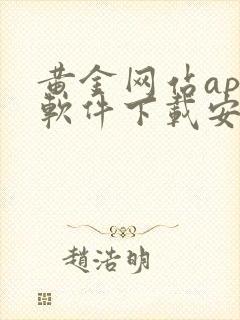 黄金网佔ap
軟件下載安
趙浩明